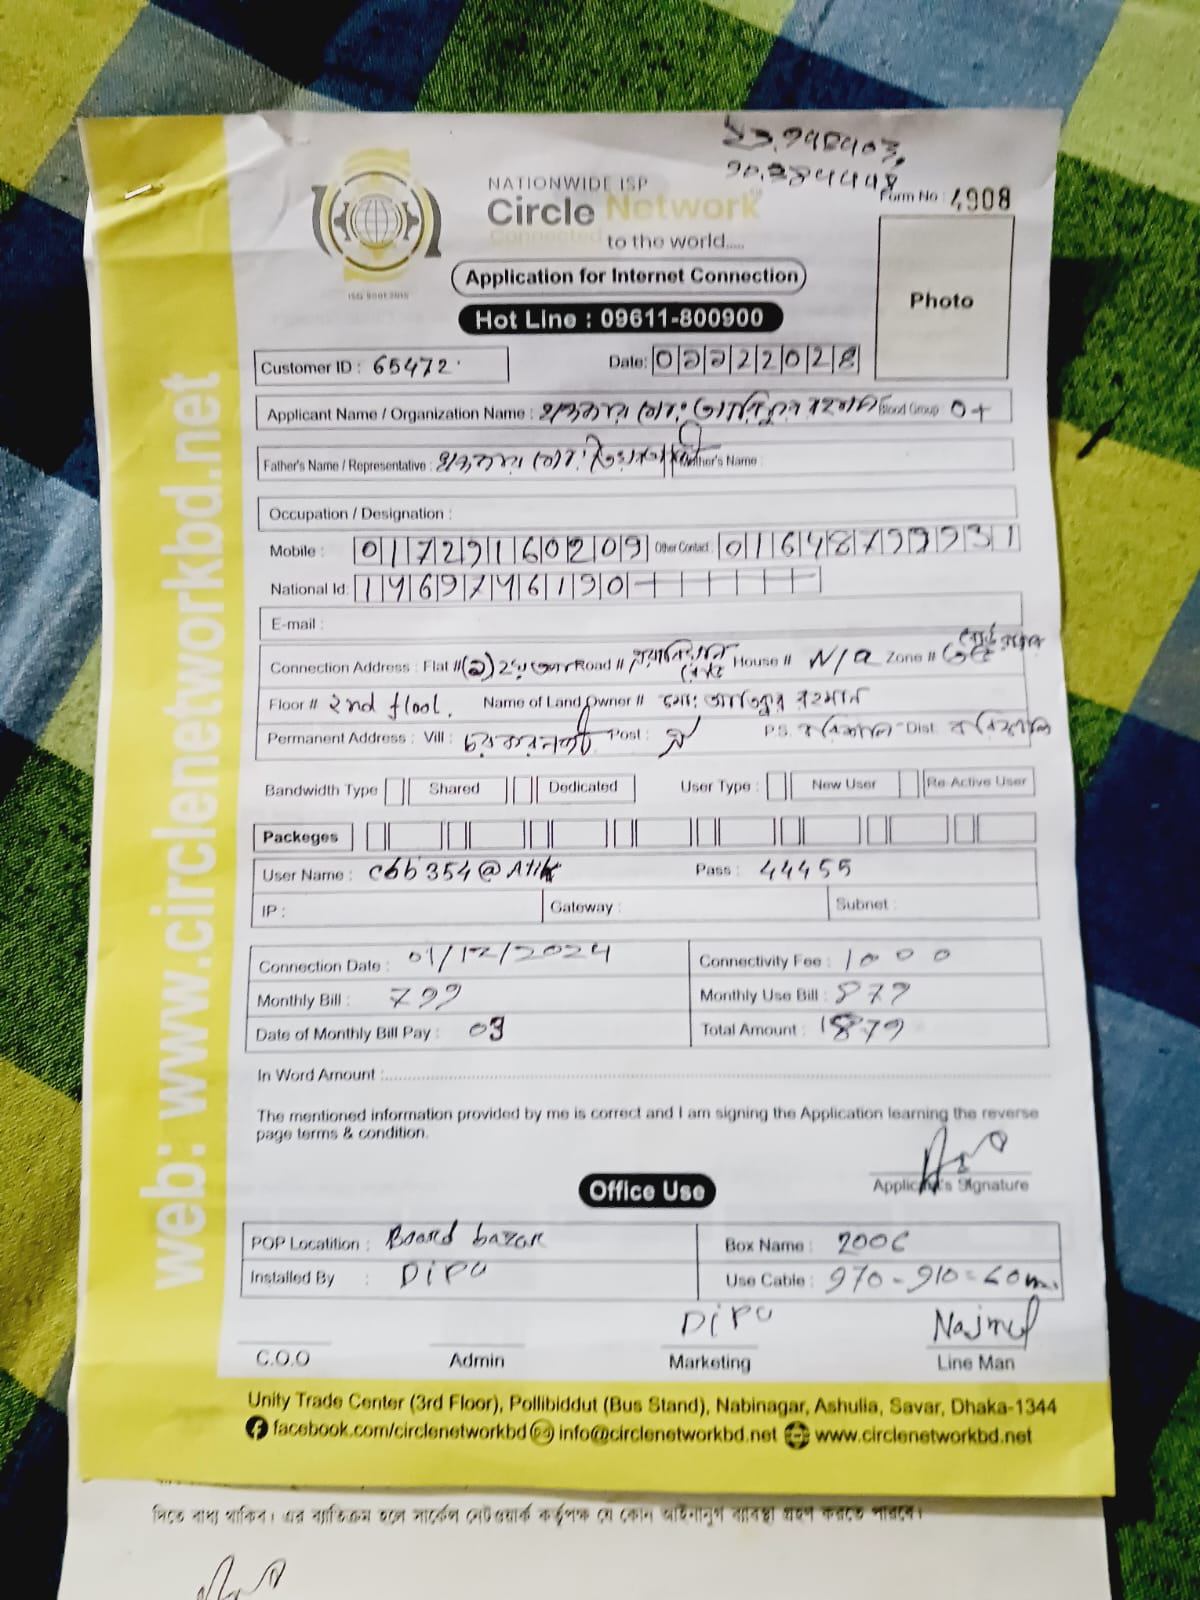 NATIONWIDE ISP
Circle Network
Connected to the world.....
ISO 9001:2015
Form No : 4908
Application for Internet Connection
Hot Line : 09611-800900
Photo
Customer ID : 65472
Date:
Applicant Name / Organization Name : Blood Group : O+
Father's Name / Representative : Mother's Name :
Occupation / Designation :
Mobile : 01729160209 Other Contact :
National Id:
E-mail :
Connection Address : Flat # Road # House # N/a Zone #
Floor # 2nd flool. Name of Land Owner # মো: আতিকুর রহমান
Permanent Address : Vill : Post : P.S. বরিশাল Dist. বরিশাল
Bandwidth Type Shared Dedicated User Type : New User Re-Active User
Packeges
User Name : Pass : 44455
IP : Gateway : Subnet :
Connection Date : 01/12/2024 Connectivity Fee : 1000
Monthly Bill : 799 Monthly Use Bill : 879
Date of Monthly Bill Pay : 03 Total Amount : 1879
In Word Amount :
The mentioned information provided by me is correct and I am signing the Application learning the reverse
page terms & condition.
Applicant's Signature
Office Use
POP Locatition : Board bazar Box Name : 2006
Installed By : DiPU Use Cable : 970-910=60m.
DiPU Najmul
C.O.O Admin Marketing Line Man
Unity Trade Center (3rd Floor), Pollibiddut (Bus Stand), Nabinagar, Ashulia, Savar, Dhaka-1344
facebook.com/circlenetworkbd info@circlenetworkbd.net www.circlenetworkbd.net
web: www.circlenetworkbd.net
দিতে বাধ্য থাকিব। এর ব্যতিক্রম হলে সার্কেল নেটওয়ার্ক কর্তৃপক্ষ যে কোন আইনানুগ ব্যাবস্থা গ্রহণ করতে পারবে।